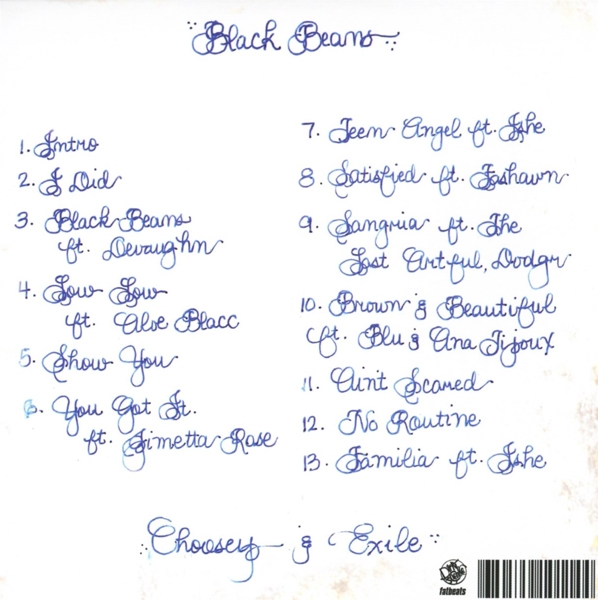 Black Beans
1. Intro
2. I Did
3. Black Beans
ft. Devaughn
4. Low Low
ft. Aloe Blacc
5. Show You
6. You Got It.
ft. Jimetta Rose
7. Teen Angel ft. I,she
8. Satisfied ft. Fashawn
9. Sangria ft. The
Lost Artful, Dodgr
10. Brown & Beautiful
ft. Blu & Ana Tijoux
11. Ain't Scared
12. No Routine
13. Familia ft. I,she
Choosey & Exile
fatbeats